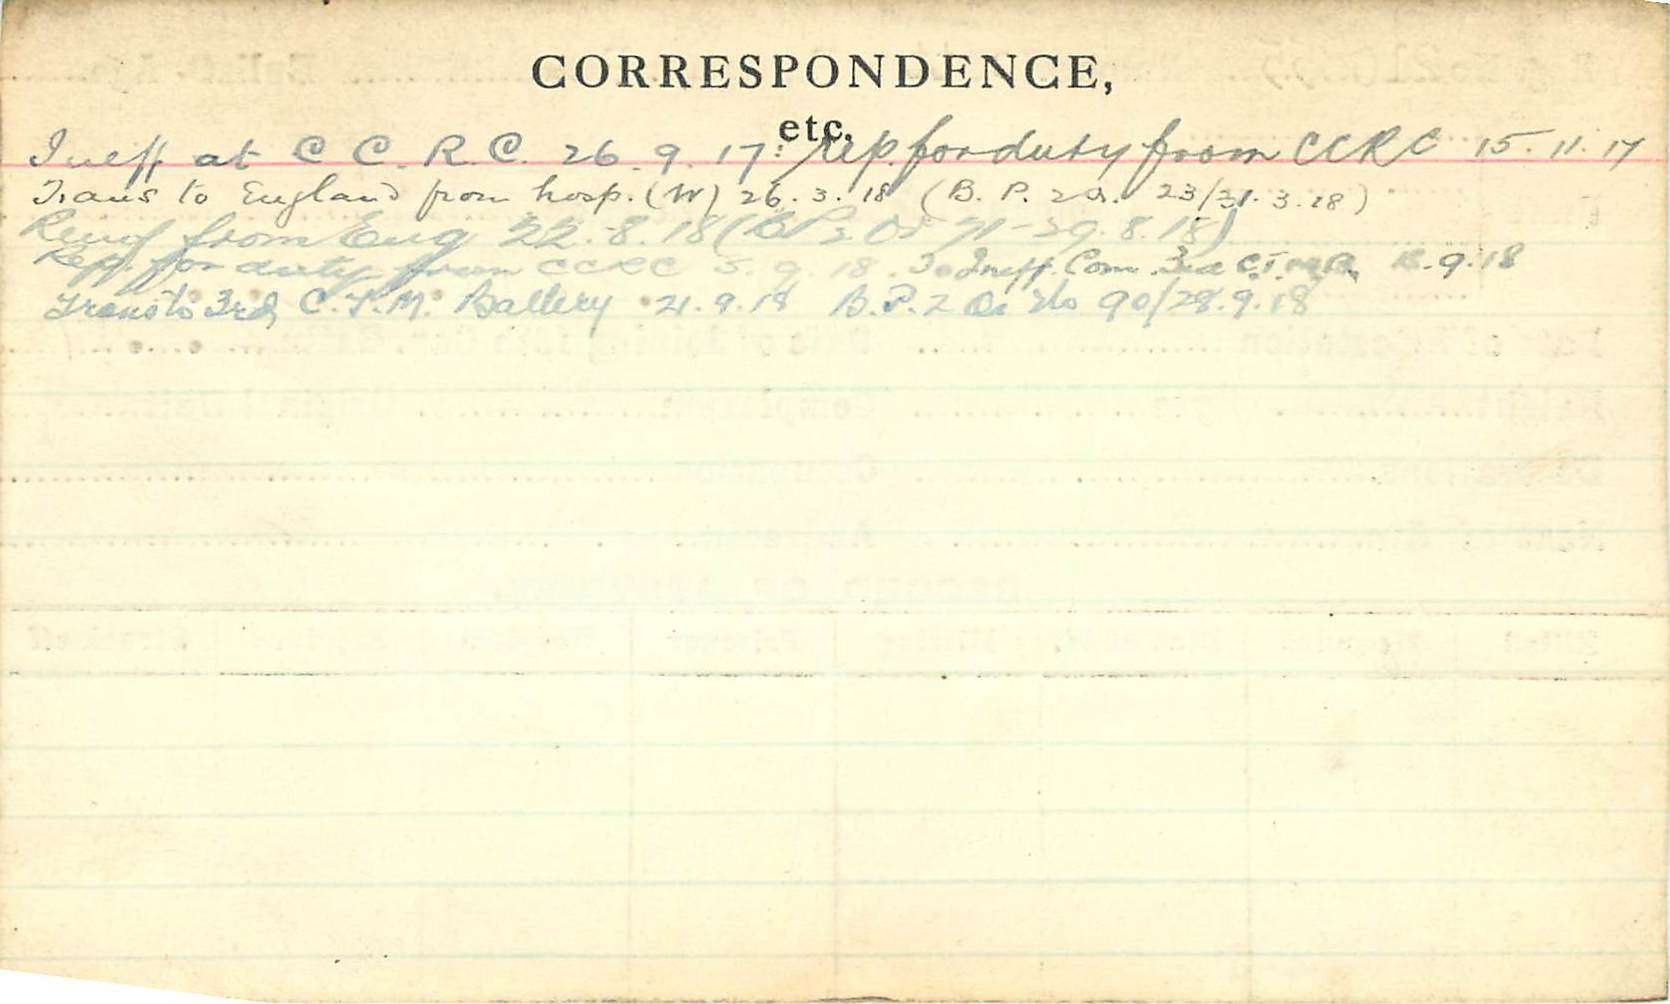 CORRESPONDENCE,
etc.
Ineff at C C. R. C. 26. 9. 17: Rep for duty from CCRC 15. 11. 17
Trans to England from hosp. (W) 26. 3. 18 (B. P. 2 O. 23/31. 3. 18)
from Eng 22. 8. 18 (BP 2 Or 71-29. 8. 18)
Rep. for duty from CCRC 5. 9. 18. Ineff. Com. 9.18
Trans to 3rd C. T. M. Battery 21. 9. 18 B. P. 2 Or No 90/28. 9. 18